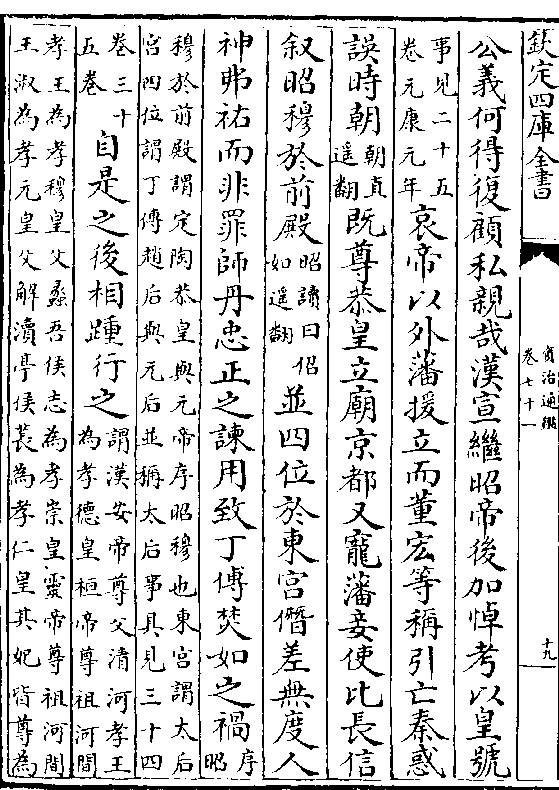 欽定四庫全書
資治通鑑
卷七十一
十九
公義何得復顧私親哉漢宣繼昭帝後加悼考以皇號
事見二十五
卷元康元年
哀帝以外藩援立而董宏等稱引亡秦惑
誤時朝
朝直
遥翻
既尊恭皇立廟京都又寵藩妾使比長信
叙昭穆於前殿
昭讀曰佋
如遥翻
並四位於東宫僭差無度人
神弗祐而非罪師丹忠正之諫用致丁傅焚如之禍
序
昭
穆於前殿謂定陶恭皇與元帝序昭穆也東宫謂太后
宫四位謂丁傅趙后與元后並稱太后事具見三十四
卷三十
五卷
自是之後相踵行之
謂漢安帝尊父清河孝王
為孝德皇桓帝尊祖河間
孝王為孝穆皇父蠡吾侯志為孝崇皇靈帝尊祖河間
王淑為孝元皇父解瀆亭侯萇為孝仁皇其妃皆尊為